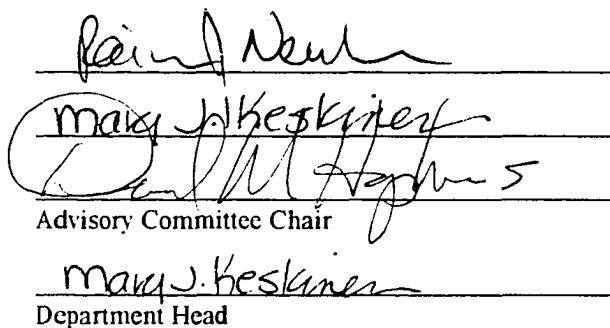 Mary J. Keskiner
David M Hopkins
Advisory Committee Chair
Mary J. Keskiner
Department Head